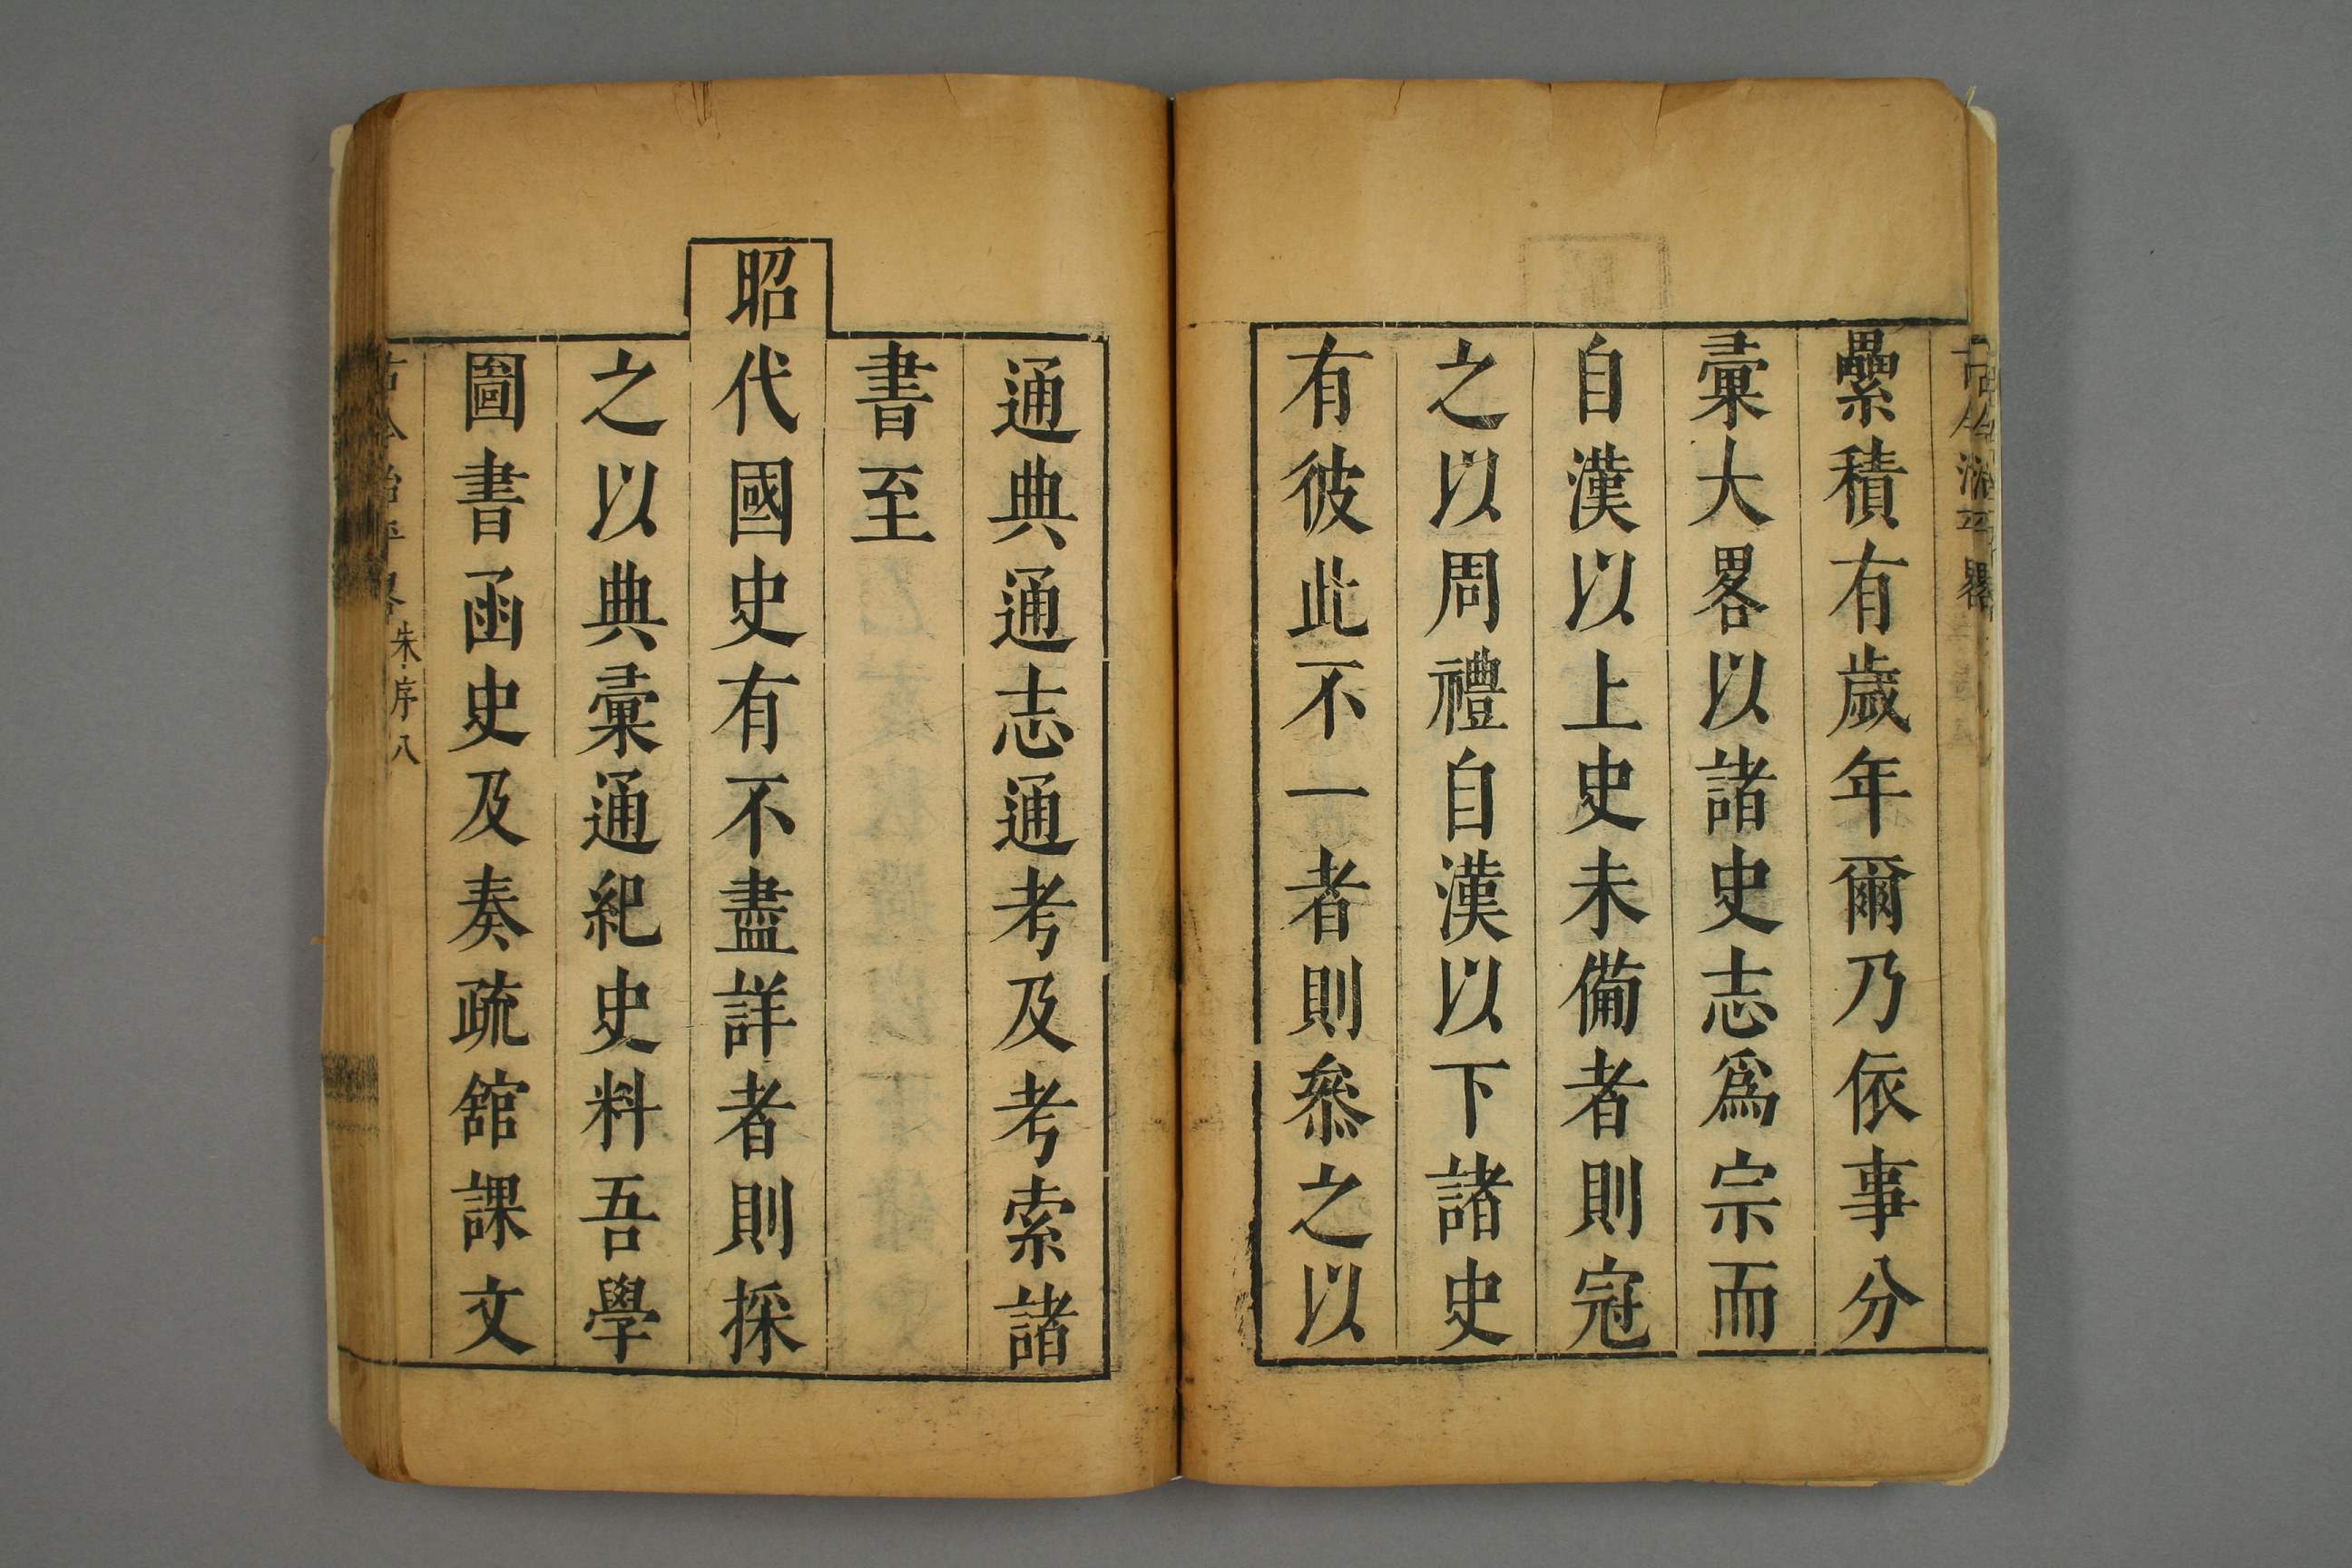 纍積有歲年爾乃依事分
彙大畧以諸史志爲宗而
自漢以上史未備者則冠
之以周禮自漢以下諸史
有彼此不一者則叅之以
通典通志通考及考索諸
書至
昭代國史有不盡詳者則採
之以典彙通紀史料吾學
圖書函史及奏疏舘課文
古今治平畧 朱序 八